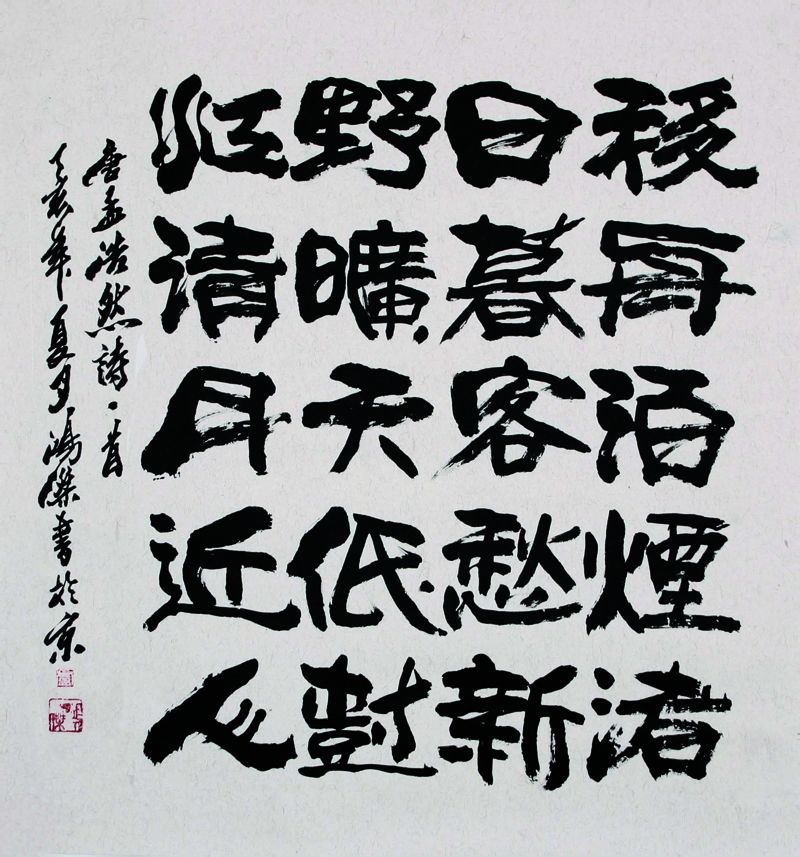 移舟泊煙渚
日暮客愁新
野曠天低樹
江清月近人
唐孟浩然詩一首
丁亥年夏月鴻傑書於京